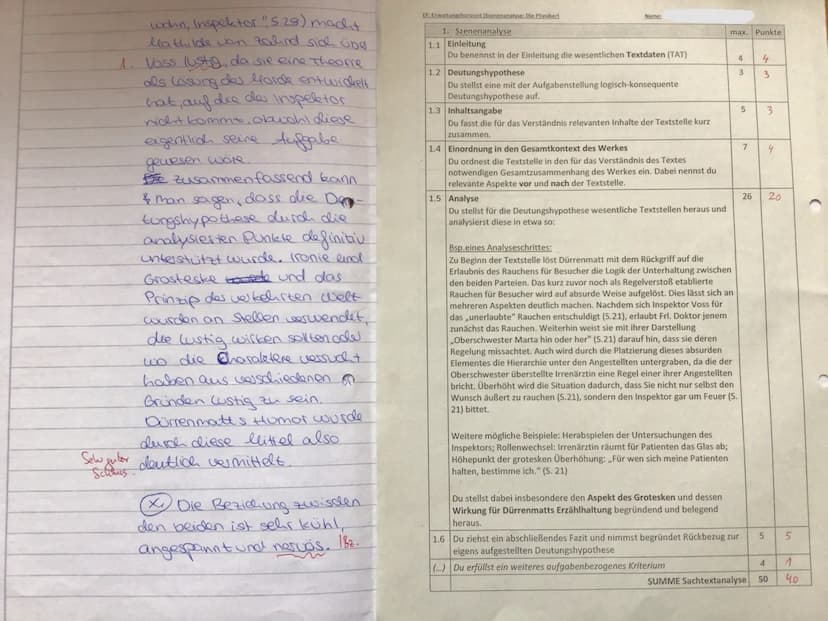 wohn, Inspektor" S.29) macht
Mathilde von Zahnd sich über
1. Voss lustig, da sie eine Theorie
als Lösung des Morde entwickelt
hat, auf die das Inspektor
nicht komme, obwohl diese
eigentlich seine Aufgabe
gewesen wäre.
Zusammenfassend kann
man sagen, dass die Deu-
tungshypothese durch die
analysierten Punkte definitiv
unterstützt wurde. Ironie und
Groteske und das
Prinzip des verkehrten Welt
wurden an Stellen verwendet,
die lustig wirken sollten oder
wo die Charaktere versucht
haben aus verschiedenen
Gründen lustig zu sein.
Dürrenmatts Humor wurde
durch diese Mittel also
deutlich vermittelt.
Sehr guter
Schluss
X. Die Beziehung zwischen
den beiden ist sehr kühl,
angespannt und nervös. Bz.
EF: Erwartungshorizont (Szenenanalyse: Die Physiker) Name:
1. Szenenanalyse max. Punkte
1.1 Einleitung
Du benennst in der Einleitung die wesentlichen Textdaten (TAT) 4 4
1.2 Deutungshypothese 3 3
Du stellst eine mit der Aufgabenstellung logisch-konsequente
Deutungshypothese auf.
1.3 Inhaltsangabe 5 3
Du fasst die für das Verständnis relevanten Inhalte der Textstelle kurz
zusammen.
1.4 Einordnung in den Gesamtkontext des Werkes 7 4
Du ordnest die Textstelle in den für das Verständnis des Textes
notwendigen Gesamtzusammenhang des Werkes ein. Dabei nennst du
relevante Aspekte vor und nach der Textstelle.
1.5 Analyse 26 20
Du stellst für die Deutungshypothese wesentliche Textstellen heraus und
analysierst diese in etwa so:
Bsp.eines Analyseschrittes:
Zu Beginn der Textstelle löst Dürrenmatt mit dem Rückgriff auf die
Erlaubnis des Rauchens für Besucher die Logik der Unterhaltung zwischen
den beiden Parteien. Das kurz zuvor noch als Regelverstoß etablierte
Rauchen für Besucher wird auf absurde Weise aufgelöst. Dies lässt sich an
mehreren Aspekten deutlich machen. Nachdem sich Inspektor Voss für
das „unerlaubte" Rauchen entschuldigt (S.21), erlaubt Frl. Doktor jenem
zunächst das Rauchen. Weiterhin weist sie mit ihrer Darstellung
„Oberschwester Marta hin oder her" (S.21) darauf hin, dass sie deren
Regelung missachtet. Auch wird durch die Platzierung dieses absurden
Elementes die Hierarchie unter den Angestellten untergraben, da die der
Oberschwester überstellte Irrenärztin eine Regel einer ihrer Angestellten
bricht. Überhöht wird die Situation dadurch, dass Sie nicht nur selbst den
Wunsch äußert zu rauchen (S.21), sondern den Inspektor gar um Feuer (S.
21) bittet.
Weitere mögliche Beispiele: Herabspielen der Untersuchungen des
Inspektors; Rollenwechsel: Irrenärztin räumt für Patienten das Glas ab;
Höhepunkt der grotesken Überhöhung: „Für wen sich meine Patienten
halten, bestimme ich." (S. 21)
Du stellst dabei insbesondere den Aspekt des Grotesken und dessen
Wirkung für Dürrenmatts Erzählhaltung begründend und belegend
heraus.
1.6 Du ziehst ein abschließendes Fazit und nimmst begründet Rückbezug zur 5 5
eigens aufgestellten Deutungshypothese
(...) Du erfüllst ein weiteres aufgabenbezogenes Kriterium 4 1
SUMME Sachtextanalyse 50 40